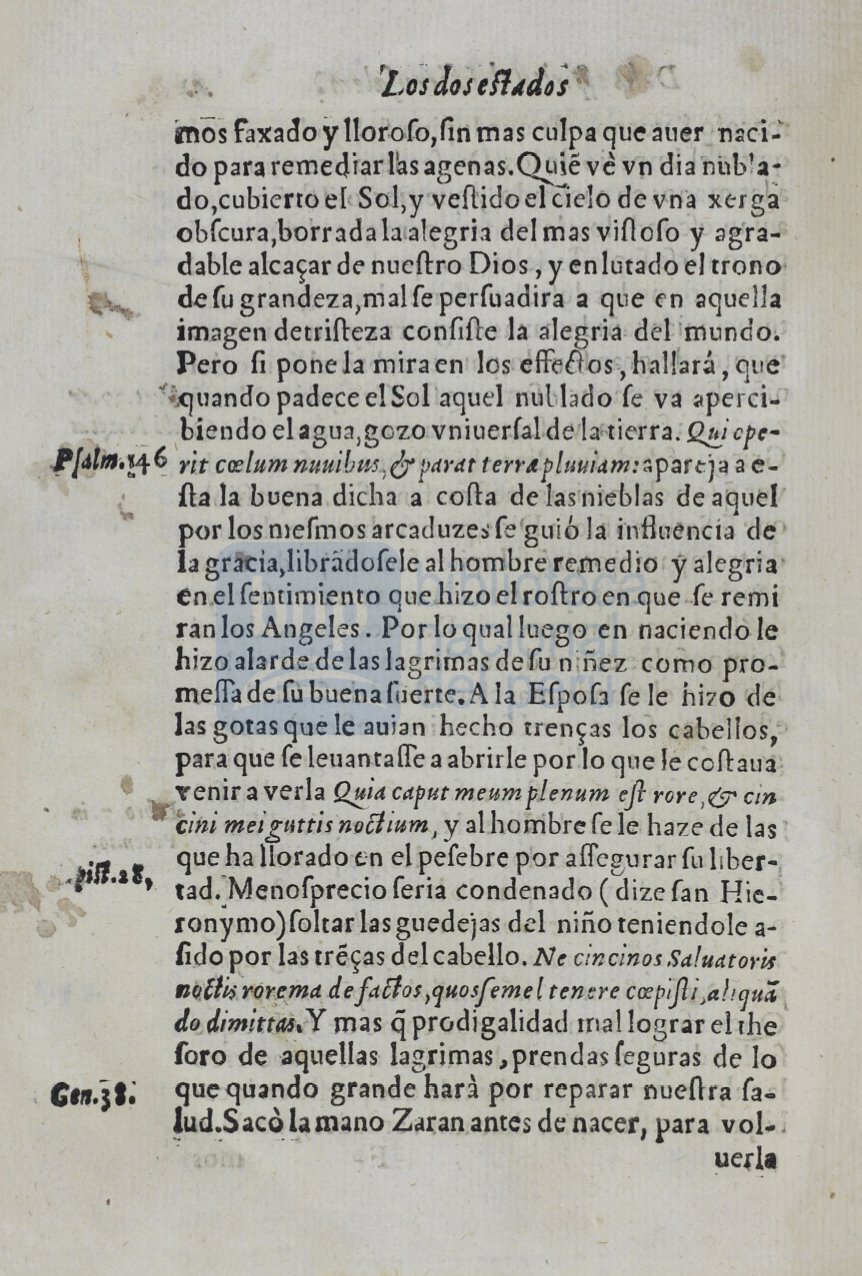 Los dos eſtados
mos faxado y lloroſo, ſin mas culpa que auer naci-
do para remediar las agenas. Quiẽ vè vn dia nubla-
do, cubierto el Sol, y veſtido el cielo de vna xerga
obſcura, borrada la alegria del mas viſtoſo y agra-
dable alcaçar de nueſtro Dios, y enlutado el trono
de ſu grandeza, mal ſe perſuadira a que en aquella
imagen de triſteza conſiſte la alegria del mundo.
Pero ſi pone la mira en los effectos, hallará, que
quando padece el Sol aquel nublado ſe va aperci-
biendo el agua, gozo vniuerſal de la tierra. Qui ope-
Pſalm. 146
rit cœlum nuuibus, & parat terræ pluuiam: apareja a e-
ſta la buena dicha a coſta de las nieblas de aquel
por los meſmos arcaduzes ſe guiò la influencia de
la gracia, librãdoſele al hombre remedio y alegria
en el ſentimiento que hizo el roſtro en que ſe remi
ran los Angeles. Por lo qual luego en naciendo le
hizo alarde de las lagrimas de ſu niñez como pro-
meſſa de ſu buena ſuerte. A la Eſpoſa ſe le hizo de
las gotas que le auian hecho trenças los cabellos,
para que ſe leuantaſſe a abrirle por lo que le coſtaua
venir a verla Quia caput meum plenum eſt rore, & cin
cini mei guttis noctium, y al hombre ſe le haze de las
que ha llorado en el peſebre por aſſegurar ſu liber-
piſt. 28,
tad. Menoſprecio ſeria condenado (dize ſan Hie-
ronymo) ſoltar las guedejas del niño teniendole a-
ſido por las trẽças del cabello. Ne cincinos Saluatoris
noctis rore madefactos, quos ſemel tenere cœpiſti, aliquã
do dimittas. Y mas q̃ prodigalidad mal lograr el the
ſoro de aquellas lagrimas, prendas ſeguras de lo
que quando grande harà por reparar nueſtra ſa-
Gen. 38.
lud. Sacò la mano Zaran antes de nacer, para vol-
uerla